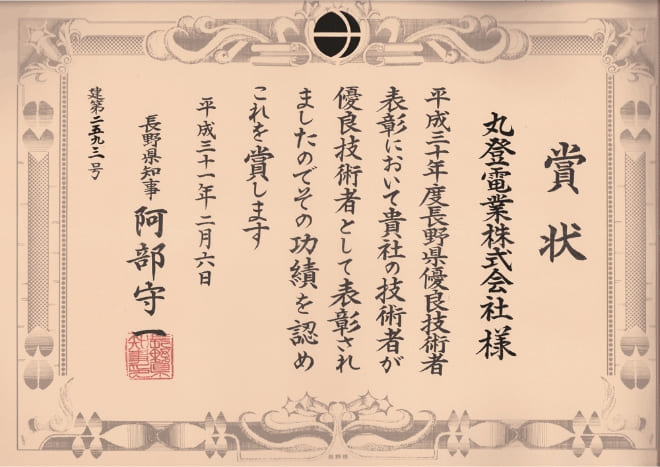 賞状
丸登電業株式会社様
平成三十年度長野県優良技術者
表彰において貴社の技術者が
優良技術者として表彰され
ましたのでその功績を認め
これを賞します
平成三十一年二月六日
長野県知事 阿部守一
建第二五九三号